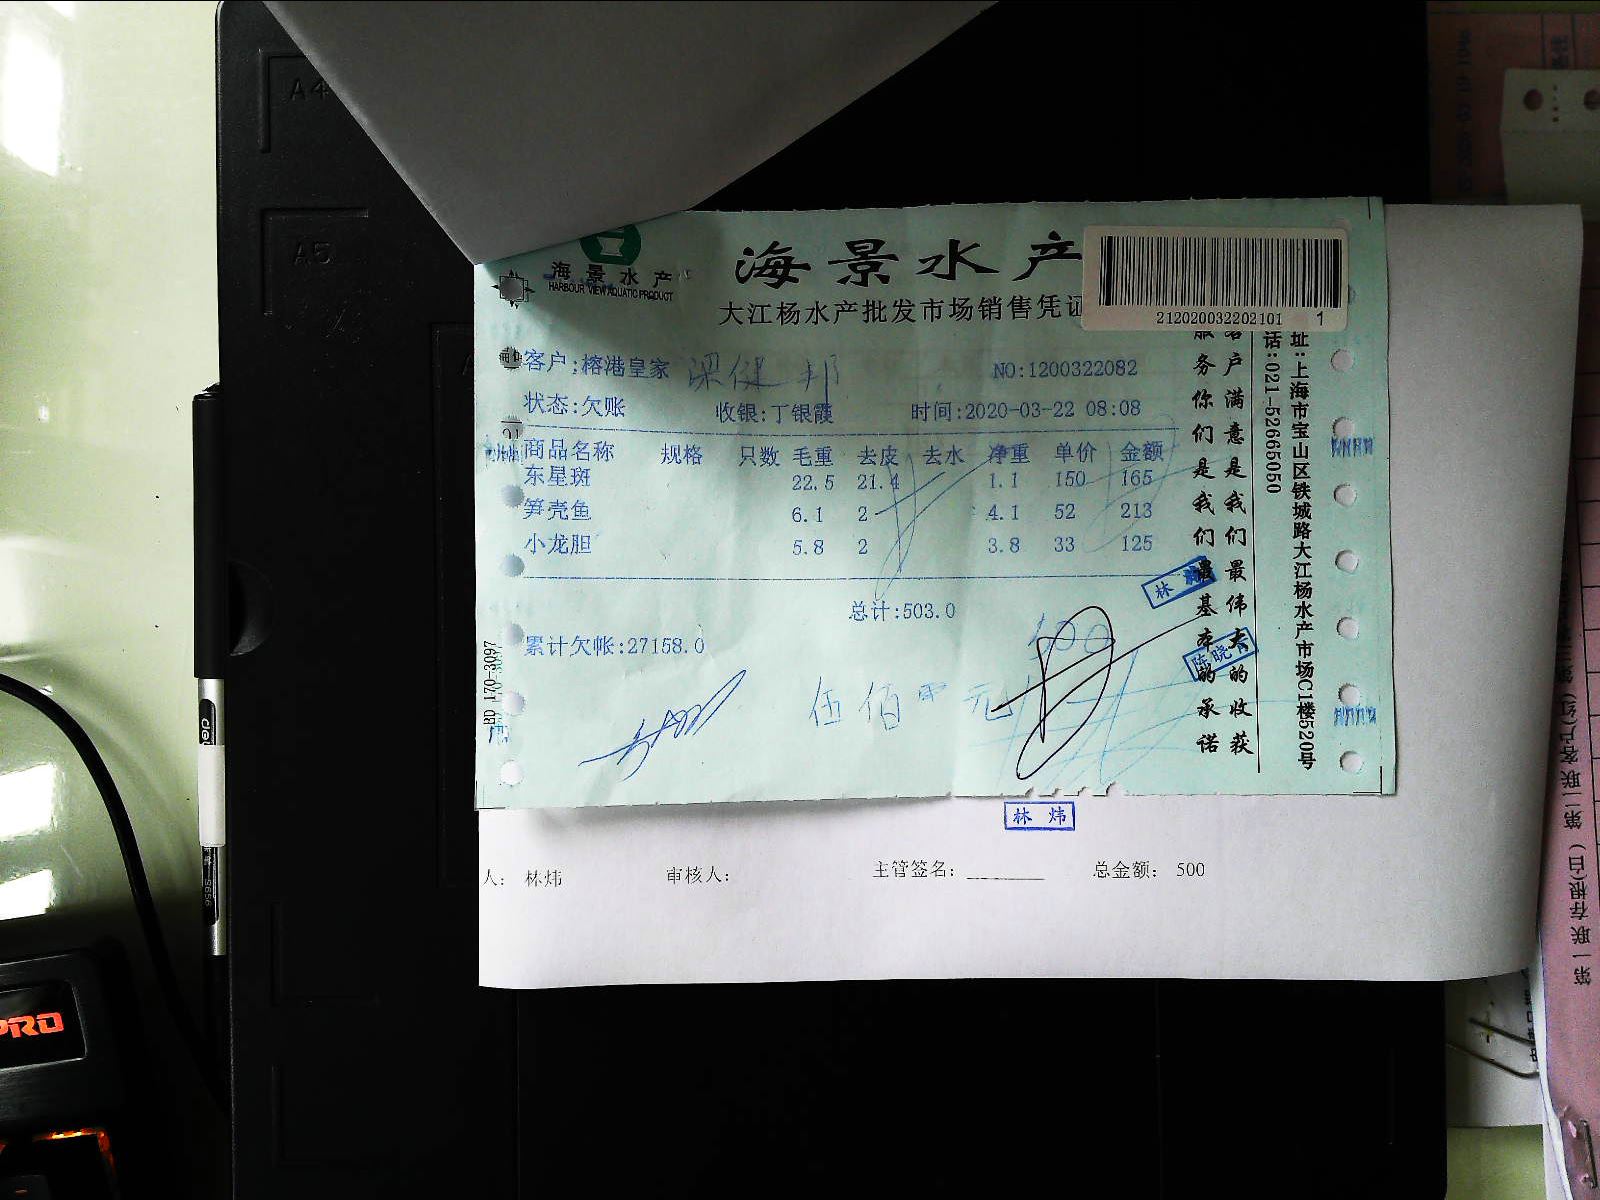 A4
A5
海景水产
HARBOUR VIEW AQUATIC PRODUCT
海景水产
大江杨水产批发市场销售凭证
212020032202101 1
客户:榕港皇家 梁健邦
NO:1200322082
状态:欠账 收银:丁银霞 时间:2020-03-22 08:08
商品名称 规格 只数 毛重 去皮 去水 净重 单价 金额
东星斑 22.5 21.4 1.1 150 165
笋壳鱼 6.1 2 4.1 52 213
小龙胆 5.8 2 3.8 33 125
总计:503.0
累计欠帐:27158.0
500
伍佰 元
客户满意是我们最伟大的收获
服务你们是我们最基本的承诺
址:上海市宝山区铁城路大江杨水产市场C1楼520号
话:021-52665050
BD 170-3097
林炜
人: 林炜 审核人: 主管签名: 总金额: 500
PRO
S656